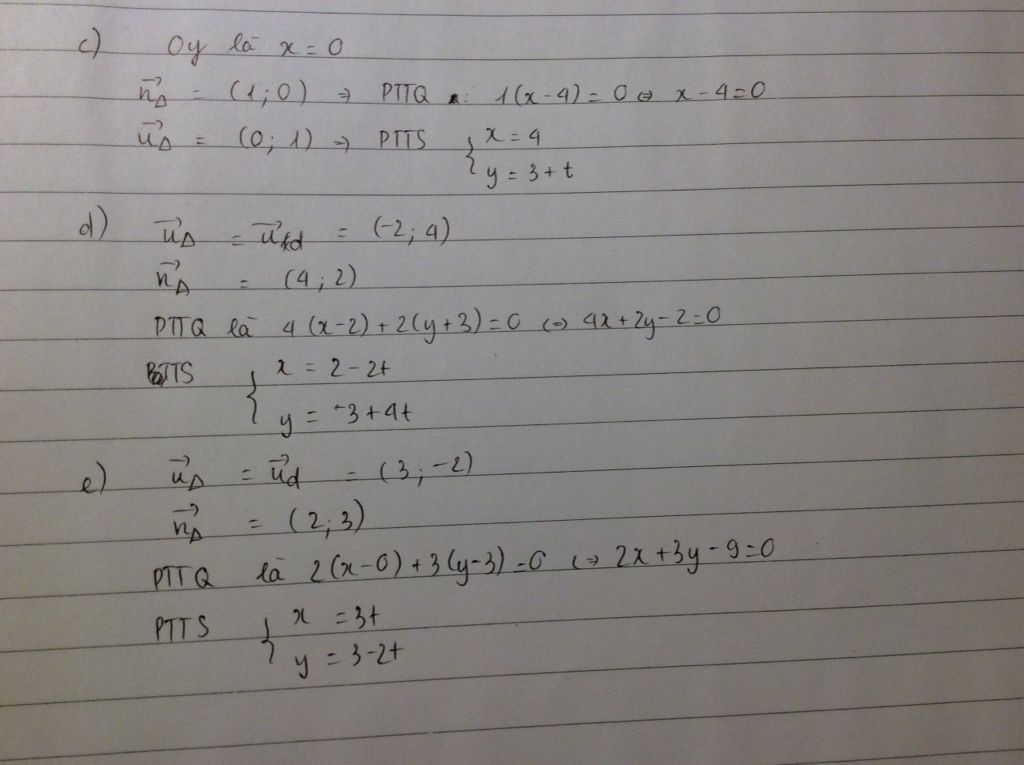 c) Oy là x = 0
n⃗Δ = (1;0) ⇒ PTTQ : 1(x-4) = 0 ⇔ x-4=0
u⃗Δ = (0;1) ⇒ PTTS { x = 4
y = 3+t
d) u⃗Δ = u⃗d = (-2;4)
n⃗Δ = (4;2)
PTTQ là 4(x-2)+2(y+3)=0 ⇔ 4x+2y-2=0
PTTS { x = 2-2t
y = -3+4t
e) u⃗Δ = u⃗d = (3;-2)
n⃗Δ = (2;3)
PTTQ là 2(x-0)+3(y-3)=0 ⇔ 2x+3y-9=0
PTTS { x = 3t
y = 3-2t